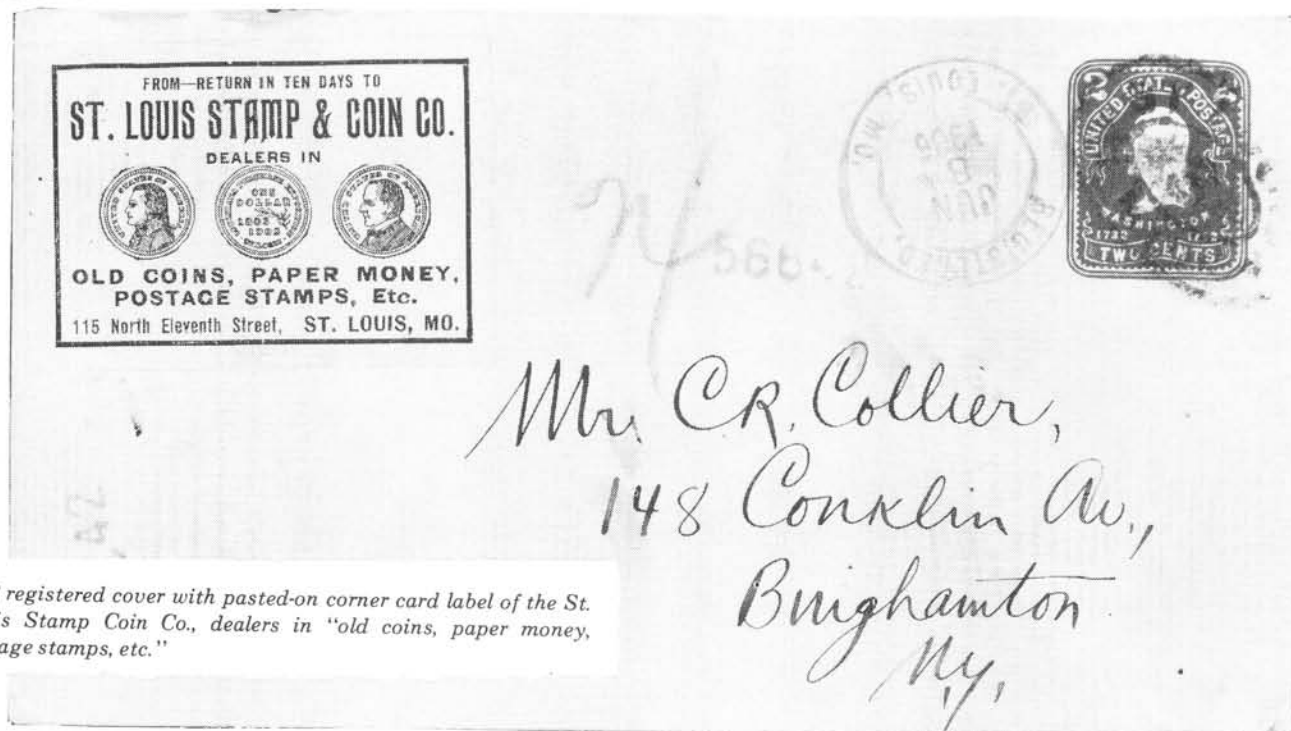 FROM—RETURN IN TEN DAYS TO
ST. LOUIS STAMP & COIN CO.
DEALERS IN
UNITED STATES OF AMERICA
ONE
DOLLAR
UNITED STATES OF AMERICA
OLD COINS, PAPER MONEY,
POSTAGE STAMPS, Etc.
115 North Eleventh Street, ST. LOUIS, MO.
ST. LOUIS, MO.
REGISTERED.
JAN
UNITED STATES POSTAGE
WASHINGTON
1732
TWO CENTS
566.
Mr. C.R. Collier,
148 Conklin Av.,
Binghamton
N.y.
registered cover with pasted-on corner card label of the St.
is Stamp Coin Co., dealers in "old coins, paper money,
age stamps, etc."